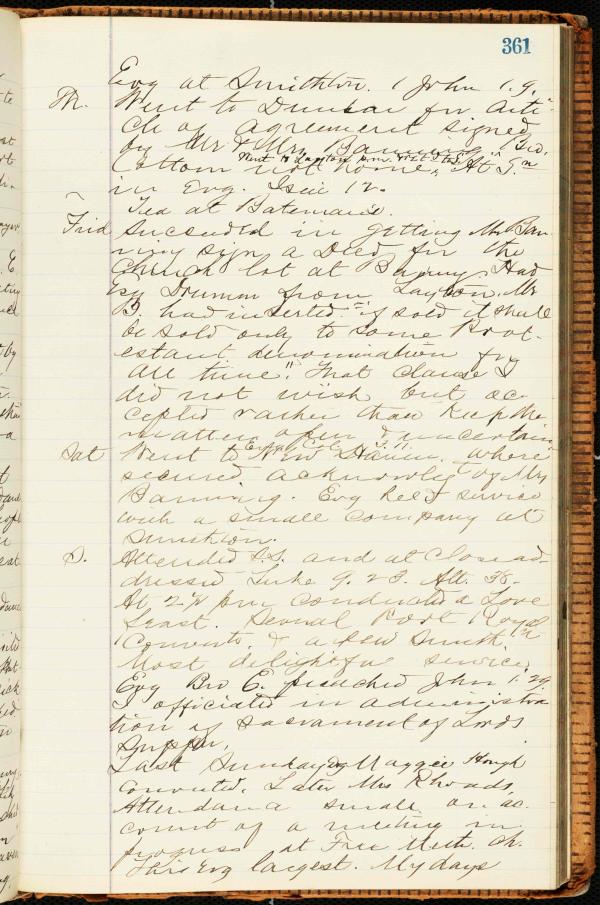 361
Evg at Smithton. 1 John 1.9.
Th. Went to Dunbar for Arti-
cle of agreement signed
by Mr & Mrs Banning Geo.
Cottom not home. Went to Layton p.m. At S—n
in Evg. Isai 12.
Tea at Bateman's.
Frid Succeeded in getting Mr Ban-
ning sign a Deed for the
Church lot at Banning. Had
Esq Drumm from Layton. Mr
B. had inserted "if sold it shall
be sold only to some Prot-
estant denomination for
all time". That clause I
did not wish but ac-
cepted rather than keep the
matter open & uncertain
Sat Went to New Haven, where
secured acknowledg of Mrs
Banning. Evg held service
with a small company at
Smithton.
S. Attended S.S. and at close ad-
dressed Luke 9.23. Att. 38.
At 2½ p.m. conducted a Love
feast. Several Port Royal
Converts, & a few Smith n
Most delightful service.
Evg Bro E. preached John 1.29
I officiated in administra
tion of Sacrament of Lords
Supper.
Last Sunday evg Maggie Hough
Converted. Later Mrs Rhoads.
Attendance small on ac-
count of a meeting in
progress at Free Meth. Ch.
This Evg largest. My days